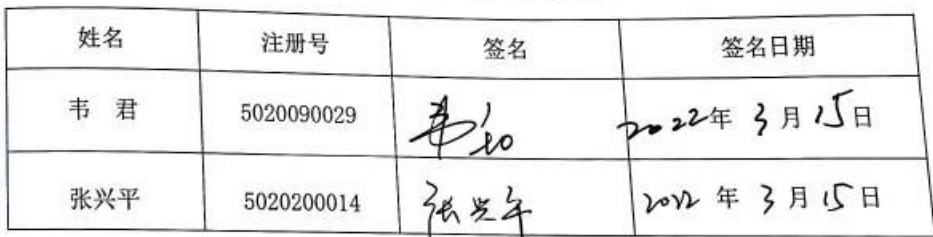 姓名 注册号 签名 签名日期
韦 君 5020090029 韦君 2022年 3月15日
张兴平 5020200014 张兴平 2022年 3月15日